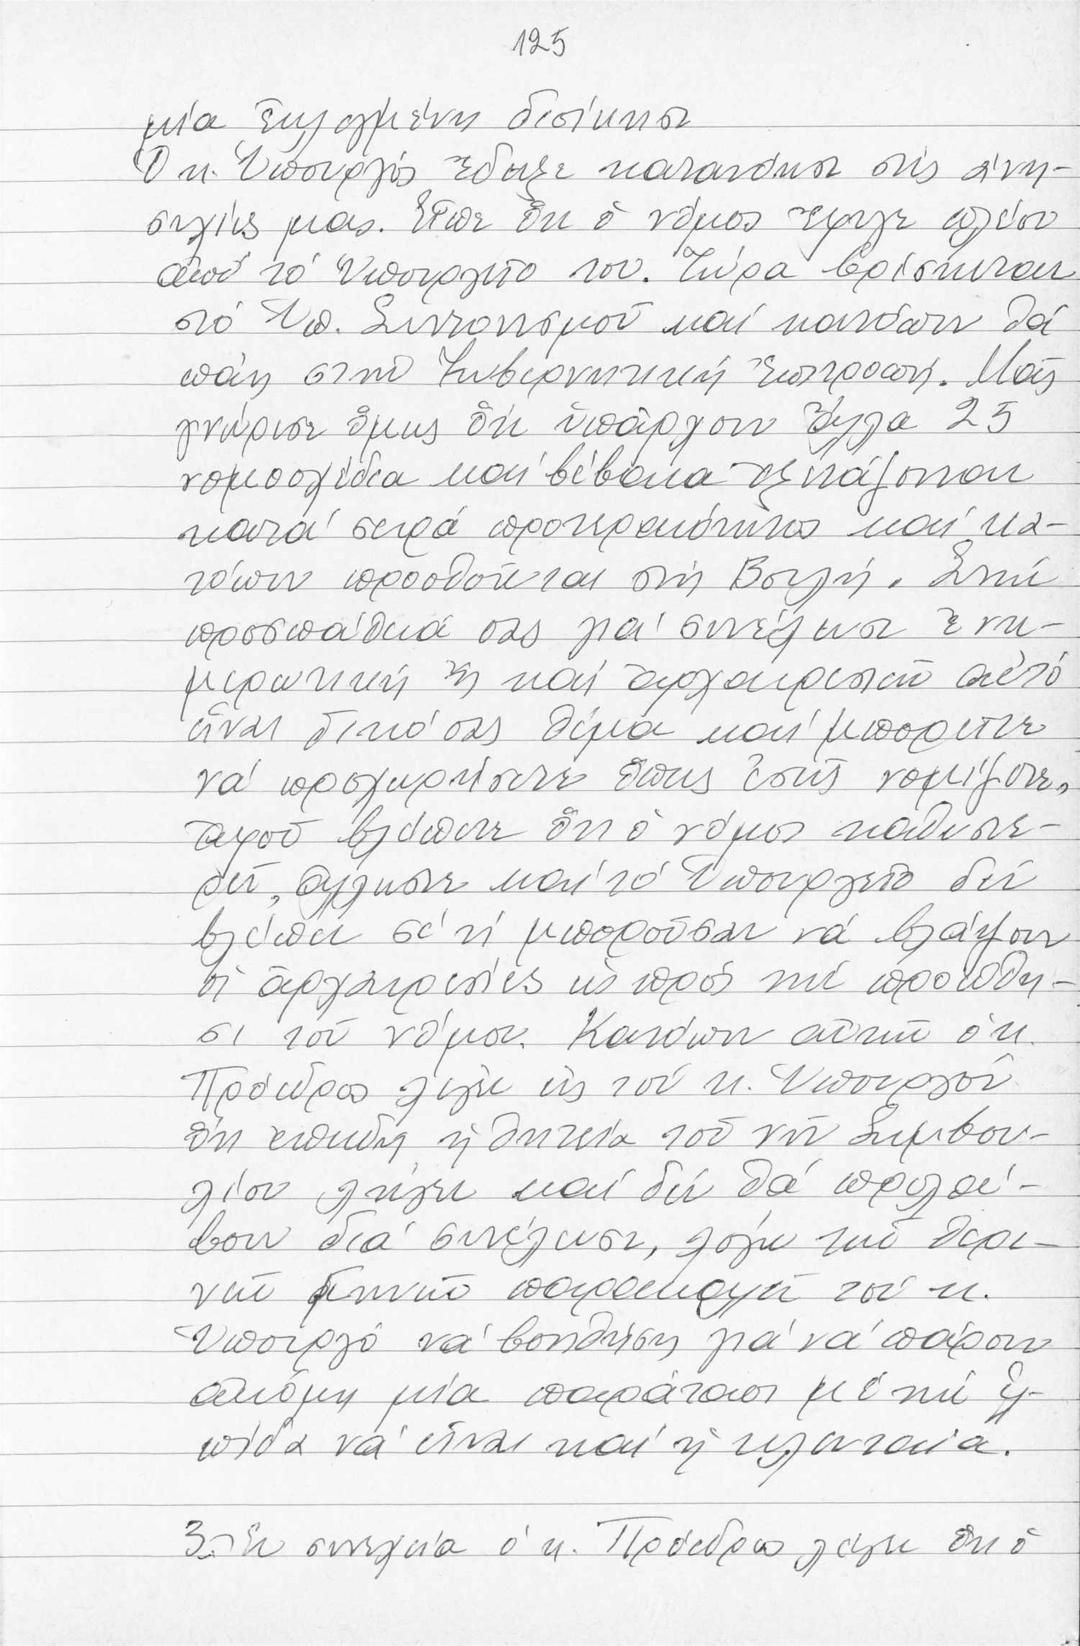 125
μία ἐκλεγμένη διοίκηση
Ὁ κ. Ὑπουργός ἔδειξε κατανόηση στίς ἀνη-
συχίες μας. Εἶπε ὅτι ὁ νόμος ἔφυγε πλέον
ἀπό τό Ὑπουργεῖο του. Τώρα βρίσκεται
στό Ὑπ. Συντονισμοῦ καί κατόπιν θά
πάη στήν Κυβερνητική Ἐπιτροπή. Μᾶς
γνώρισε ὅμως ὅτι ὑπάρχουν ἄλλα 25
νομοσχέδια καί βέβαια ἐξετάζονται
κατά σειρά προτεραιότητος καί κα-
τόπιν προωθοῦνται στή Βουλή. Στήν
προσπάθειά σας γιά συνέλευση ἐνη-
μερωτική ἤ καί ἀρχαιρεσιῶν αὐτό
εἶναι δικό σας θέμα καί μπορεῖτε
νά προχωρήσετε ὅπως ἐσεῖς νομίζετε,
ἀφοῦ βλέπετε ὅτι ὁ νόμος καθυστε-
ρεῖ, ἄλλωστε καί τό Ὑπουργεῖο δέν
βλέπει σέ τί μποροῦσαν νά βλάψουν
οἱ ἀρχαιρεσίες ὡς πρός τήν προώθη-
ση τοῦ νόμου. Κατόπιν αὐτῶν ὁ κ.
Πρόεδρος λέγει εἰς τόν κ. Ὑπουργόν
ὅτι ἐπειδή ἡ θητεία τοῦ νῦν Συμβου-
λίου λήγει καί δέν θά προλά-
βουν διά συνέλευση, λόγω τῶν θερι-
νῶν μηνῶν παρακαλεῖ τόν κ.
Ὑπουργό νά βοηθήση γιά νά πάρουν
ἀκόμη μία παράταση μέ τήν ἐλ-
πίδα νά εἶναι καί ἡ τελευταία.
3. Ἐν συνεχεία ὁ κ. Πρόεδρος λέγει ὅτι ὁ